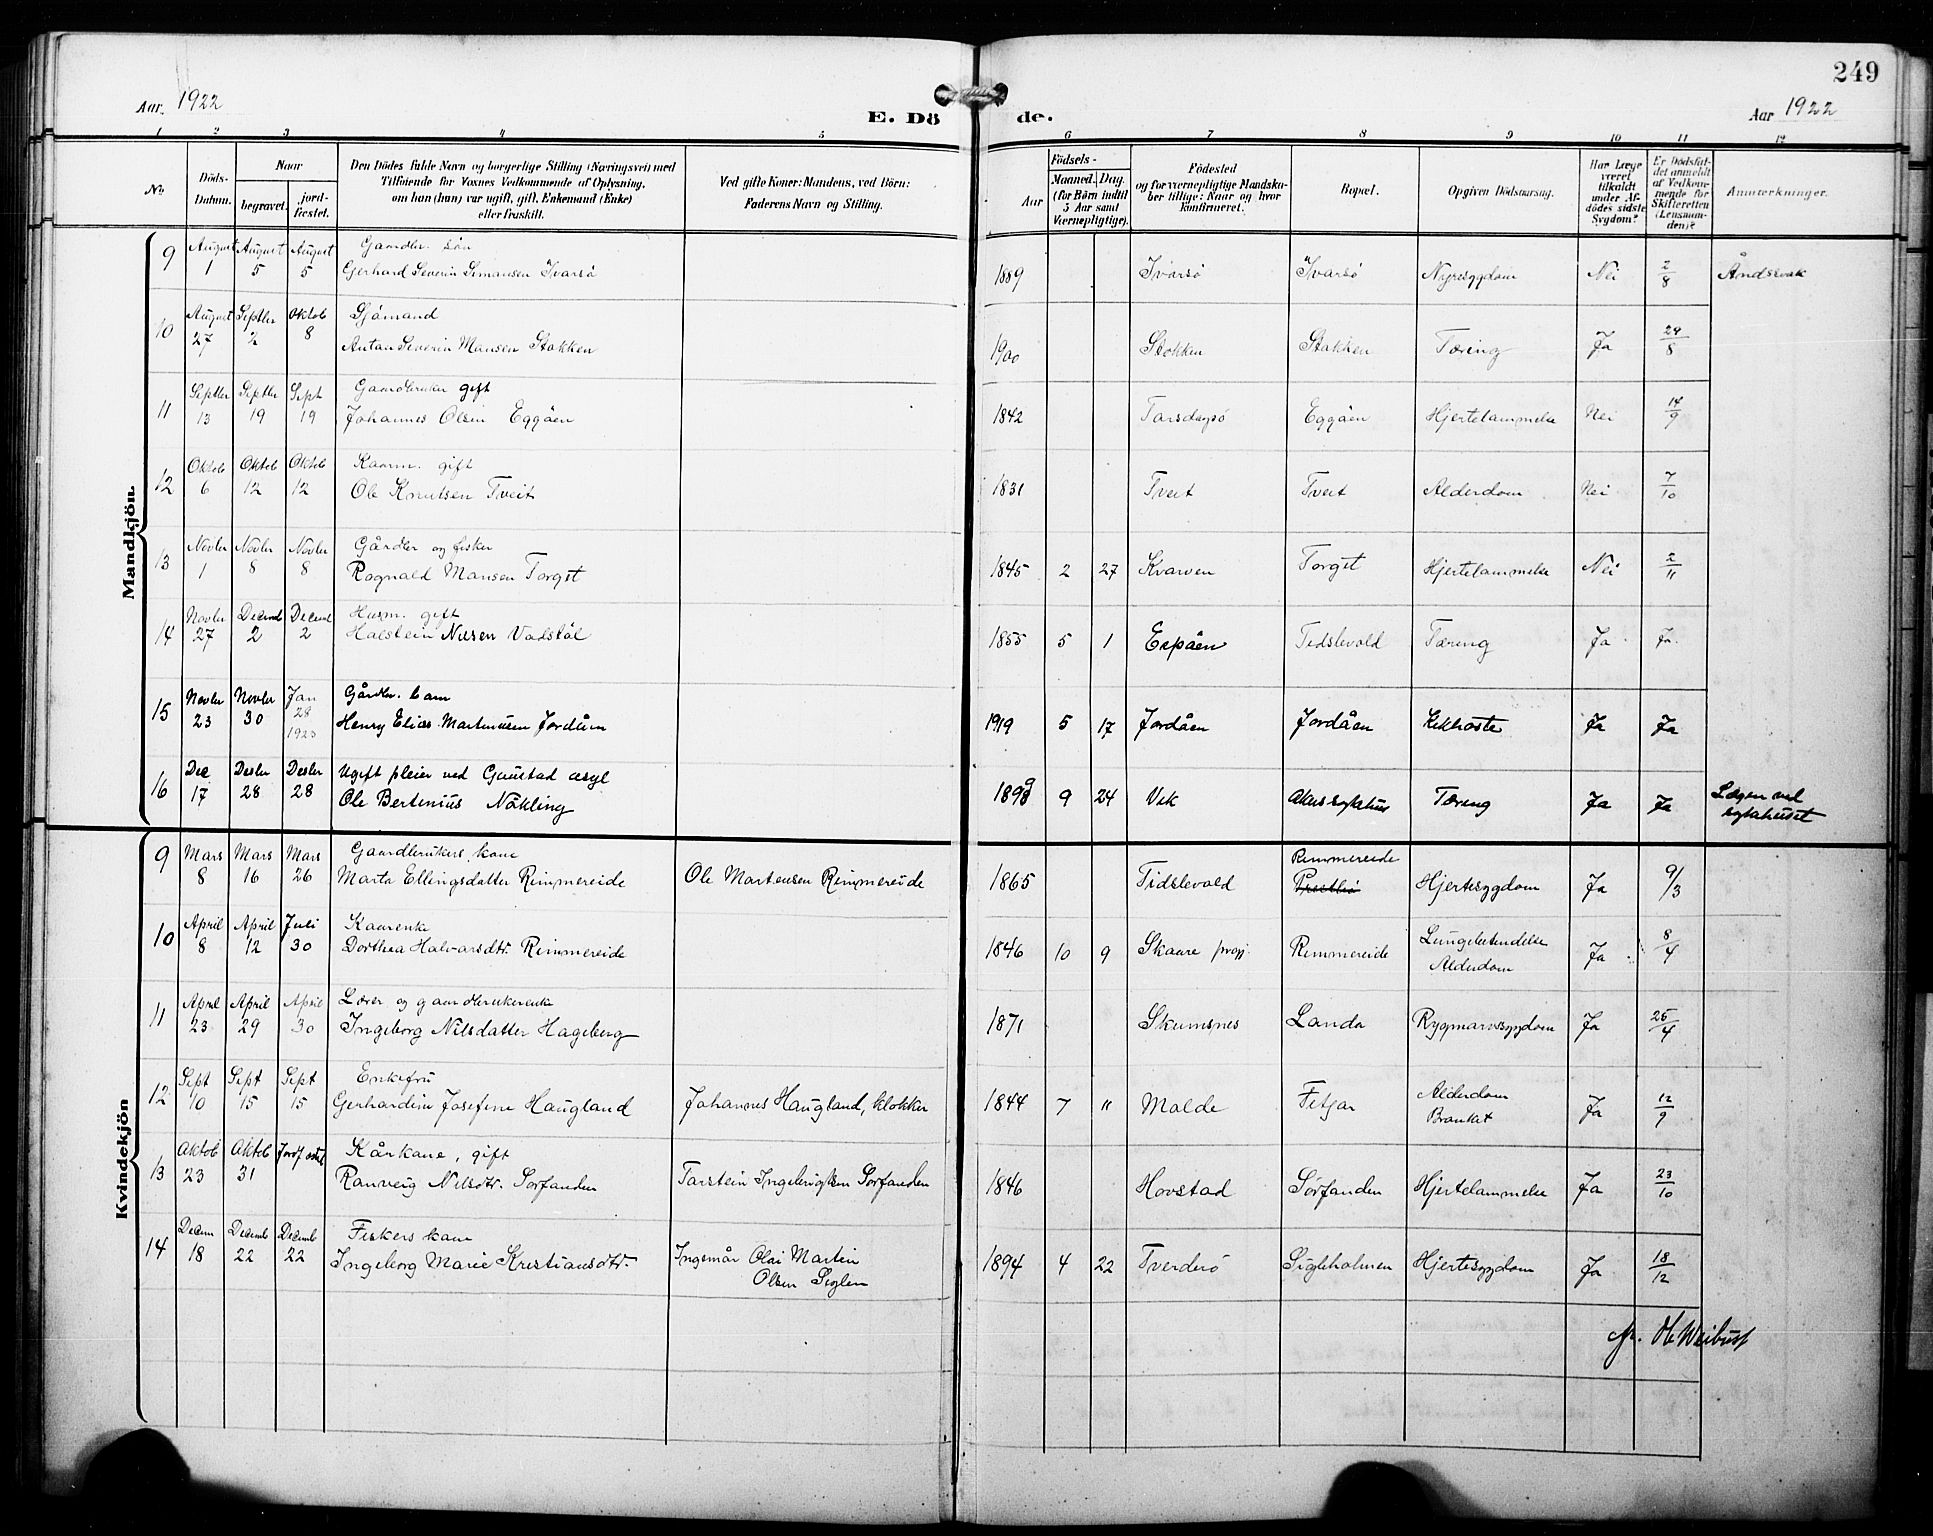 249
Aar 1922
E. Döde.
Aar 1922
1 2 3 4 5 6 7 8 9 10 11 12
No.
Döds-Datum.
Naar
begravet.
jordfæstet.
Den Dödes fulde Navn og borgerlige Stilling (Næringsvei) med
Tilföiende for Voxnes Vedkommende af Oplysning,
om han (hun) var ugift, gift, Enkemand (Enke)
eller fraskilt.
Ved gifte Koner: Mandens, ved Börn:
Faderens Navn og Stilling.
Födsels-
Aar
Maaned. Dag.
(for Börn indtil
5 Aar samt
Værnepligtige).
Födested
og for værnepligtige Mandskaber tillige: Naar og hvor
konfirmeret.
Bopæl.
Opgiven Dödsaarsag.
Har Læge
været
tilkaldt
under Afdödes sidste
Sygdom?
Er Dödsfaldet anmeldt
af Vedkommende for
Skifteretten
(Lensmanden)?
Anmærkninger.
Mandkjön.
9 August 1 August 5 August 5 Gaardbr. sön
Gerhard Severin Simonsen Ivarsö 1889 Ivarsö Ivarsö Nyresygdom Nei 2/8 Åndssvak
10 August 27 Septbr 2 Oktob 8 Sjömand
Anton Severin Monsen Stokken 1900 Stokken Stokken Tæring Ja 29/8
11 Septbr 13 Septbr 19 Sept 19 Gaardbruker gift
Johannes Olsen Eggöen 1842 Eggöen Hjertelammelse Nei 14/9
12 Oktob 6 Oktob 12 Oktob 12 Kaarm. gift
Ole Knutsen Tveit 1831 Tveit Tveit Alderdom Nei 7/10
13 Novbr 1 Novbr 8 Novbr 8 Gårdbr og fisker
Rognald Monsen Torget 1845 2 27 Kvarven Torget Hjertelammelse Nei 2/11
14 Novbr 27 Decemb 2 Decemb 2 Husm. gift
Halstein Nilsen Vadstöl 1855 5 1 Espöen Tidslevold Tæring Ja Ja
15 Novbr 23 Novbr 30 Jan 28 1923 Gårdbr. barn
Henry Elias Martinusen Jordåen 1919 5 17 Jordåen Jordåen Kikhoste Ja Ja
16 Dec 17 Desbr 28 Desbr 28 Ugift pleier ved Gaustad asyl
Ole Bertinius Nökling 1898 9 24 Vik Akersykehus Tæring Ja Ja Lægen ved
sykehuset
Kvindekjön
9 Mars 8 Mars 16 Mars 26 Gaardbrukers kone
Marta Ellingsdatter Rimmereide Ole Martensen Rimmereide 1865 Tidslevold Rimmereide Hjertesygdom Ja 9/3
10 April 8 April 12 Juli 30 Kaarenke
Dorthea Halvarsdtr. Rimmereide 1846 10 9 Skaare Rimmereide Lungebetendelse
Alderdom Ja 8/4
11 April 23 April 29 April 30 Lærer og gaardbrukerenke
Ingeborg Nilsdatter Hageberg 1871 Skumsnes Landa Rygmarvssygdom Ja 25/4
12 Sept 10 Sept 15 Sept 15 Enkefru
Gerhardine Josefine Haugland Johannes Haugland, klokker 1844 7 " Molde Fitjar Alderdom
Bronkit Ja 12/9
13 Oktob 23 Oktob 31 Kårkone, gift
Ranveig Nilsdtr. Sörfonden Torstein Ingebrigtsen Sörfonden 1846 Hovstad Sörfonden Hjertelammelse Ja 23/10
14 Decem 18 Decemb 22 Decemb 22 Fiskers kone
Ingeborg Marie Kristiansdtr. Ingemår Olai Martin
Olsen Siglen 1894 4 22 Tverderö Sigleholmen Hjertesygdom Ja 18/12